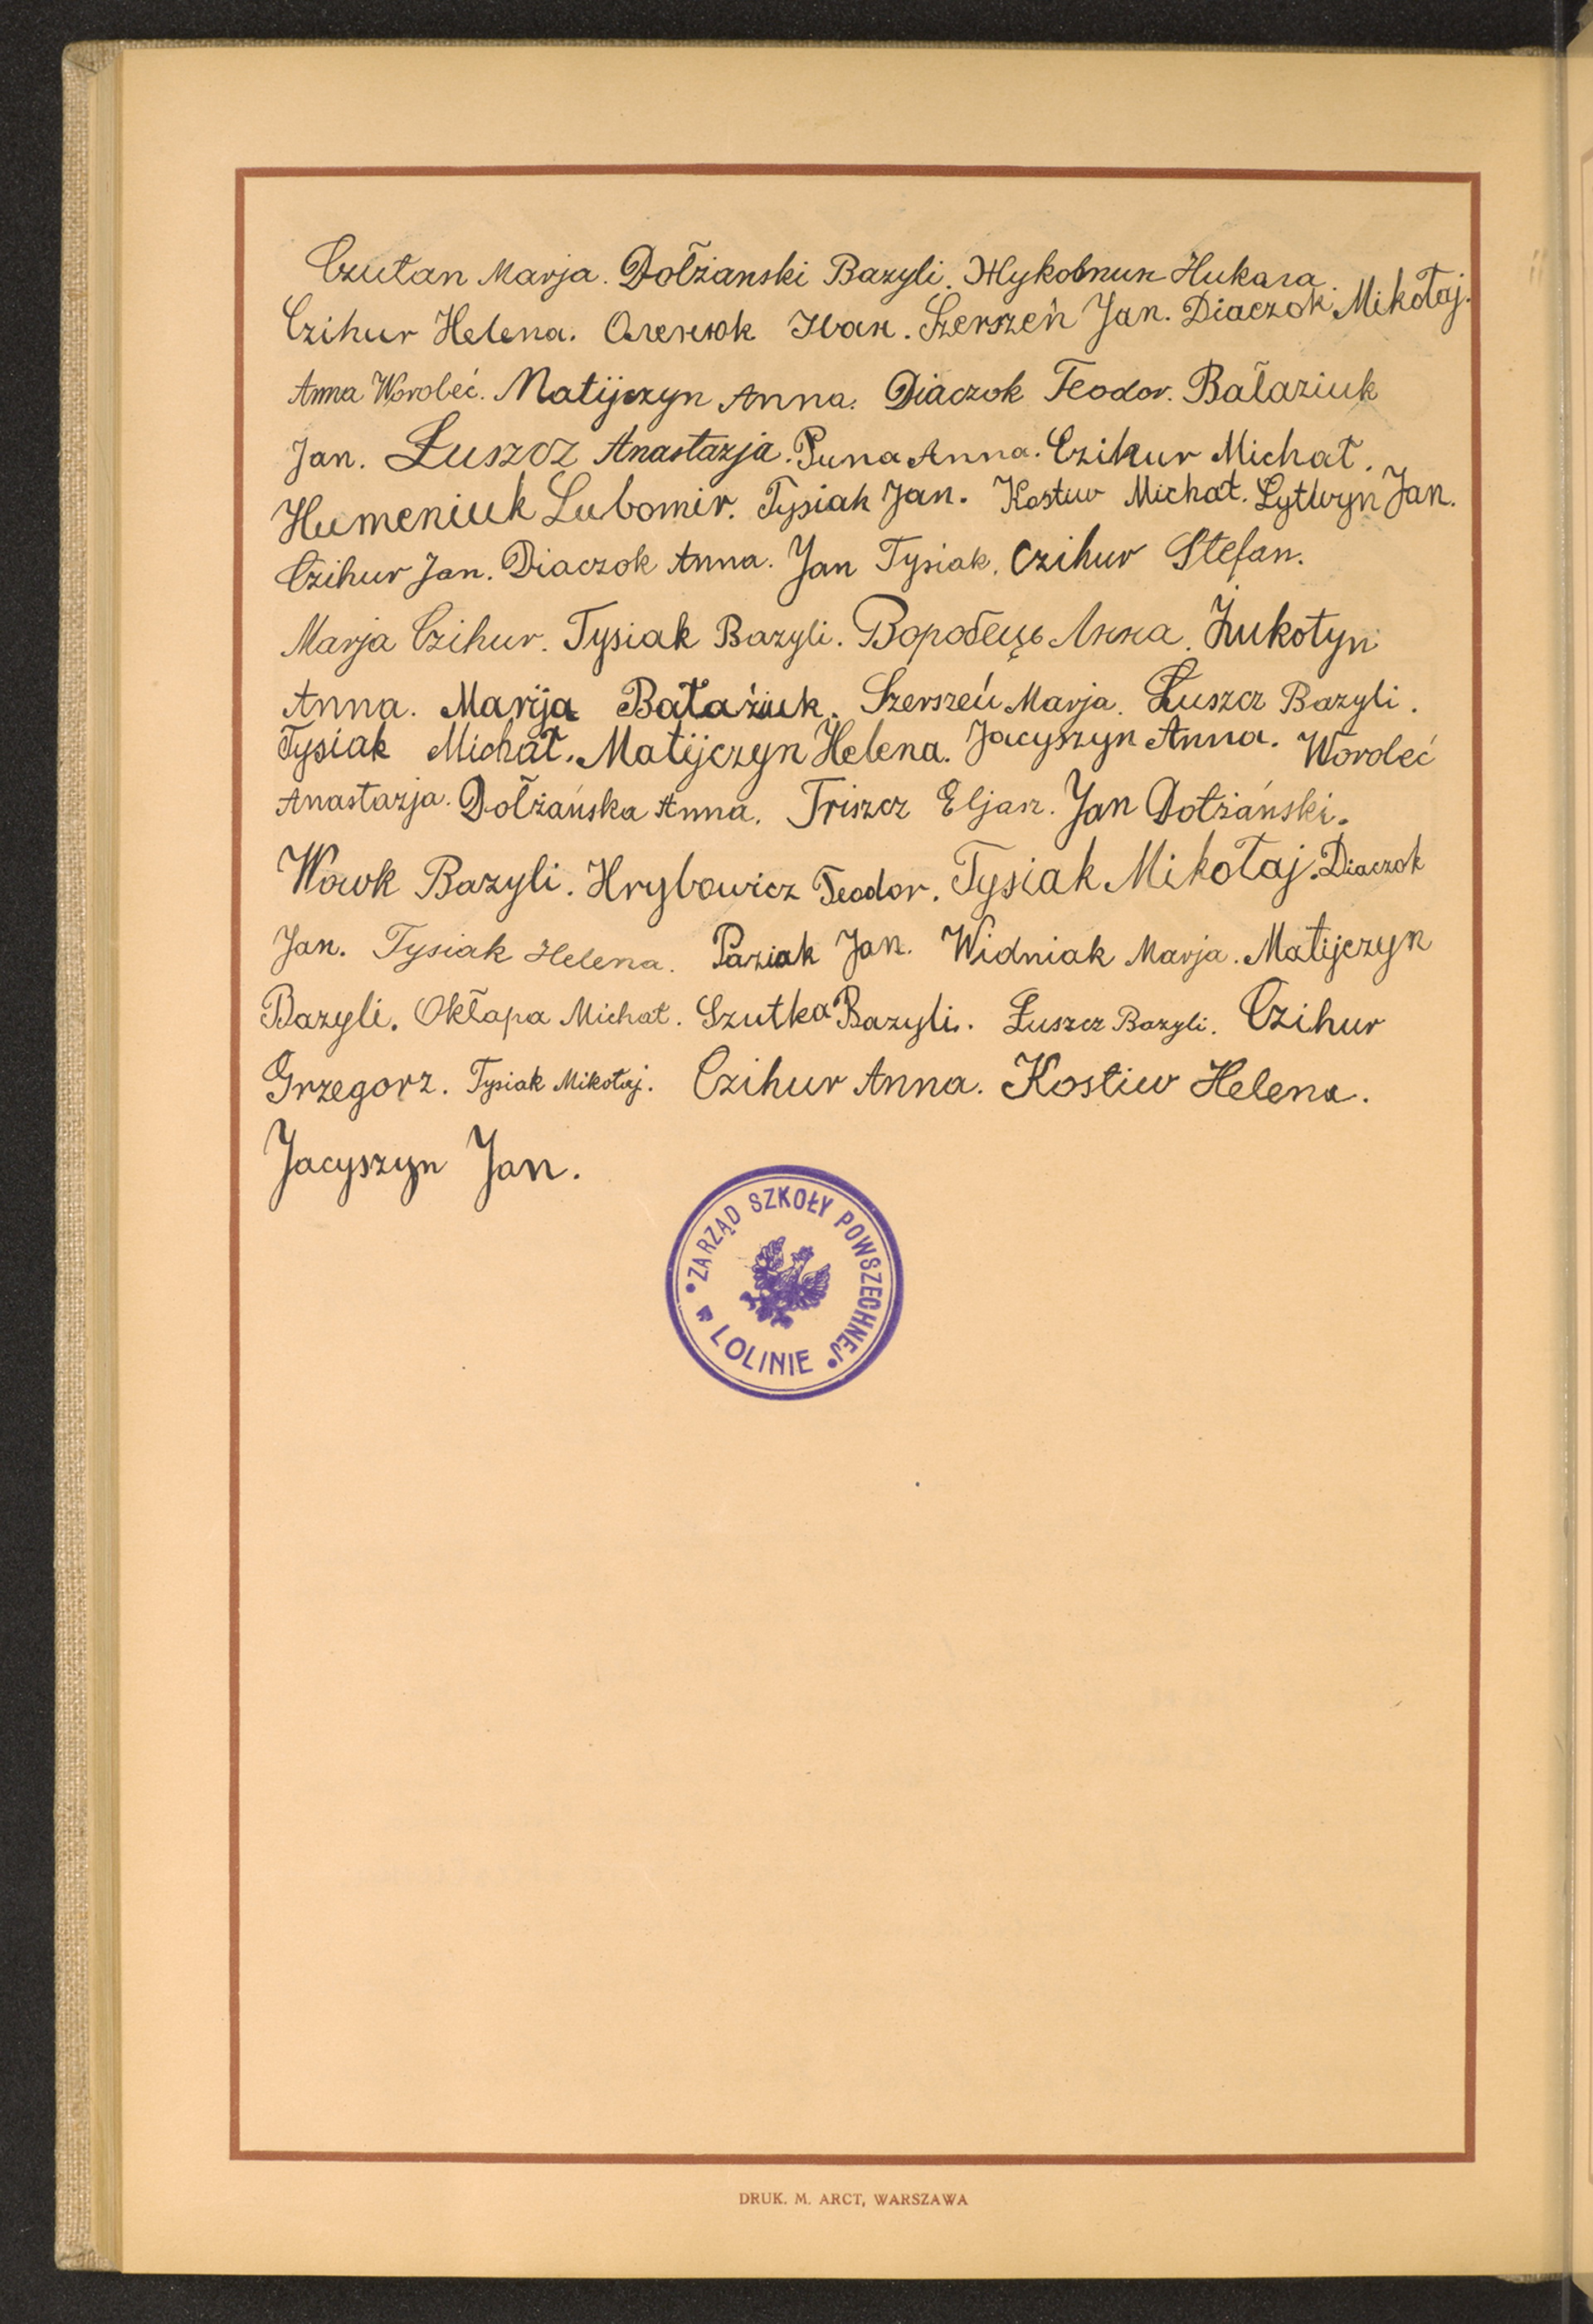 Czułan Marja. Dołżanski Bazyli. Жуковнин Никола.
Czihur Helena. Оленюк Иван. Szerszeń Jan. Diaczok Mikołaj.
Anna Worobeć. Matijczyn Anna. Diaczok Teodor. Bałaziuk
Jan. Łuszcz Anastazja. Puna Anna. Czihur Michał.
Humeniuk Lubomir. Tysiak Jan. Kostiw Michał. Łytwyn Jan.
Czihur Jan. Diaczok Anna. Jan Tysiak. Czihur Stefan.
Marja Czihur. Tysiak Bazyli. Воробець Анна. Żukotyn
Anna. Marija Bałaźiuk. Szerszeń Marja. Łuszcz Bazyli.
Tysiak Michał. Matijczyn Helena. Jacyszyn Anna. Worobeć
Anastazja. Dołżańska Anna. Triszcz Eljasz. Jan Dołżański.
Wowk Bazyli. Hrybowicz Teodor. Tysiak Mikołaj. Diaczok
Jan. Tysiak Helena. Paziak Jan. Widniak Marja. Matijczyn
Bazyli. Okłapa Michał. Szutka Bazyli. Łuszcz Bazyli. Czihur
Grzegorz. Tysiak Mikołaj. Czihur Anna. Kostiw Helena.
Jacyszyn Jan.
ZARZĄD SZKOŁY POWSZECHNEJ
W LOLINIE
DRUK. M. ARCT, WARSZAWA